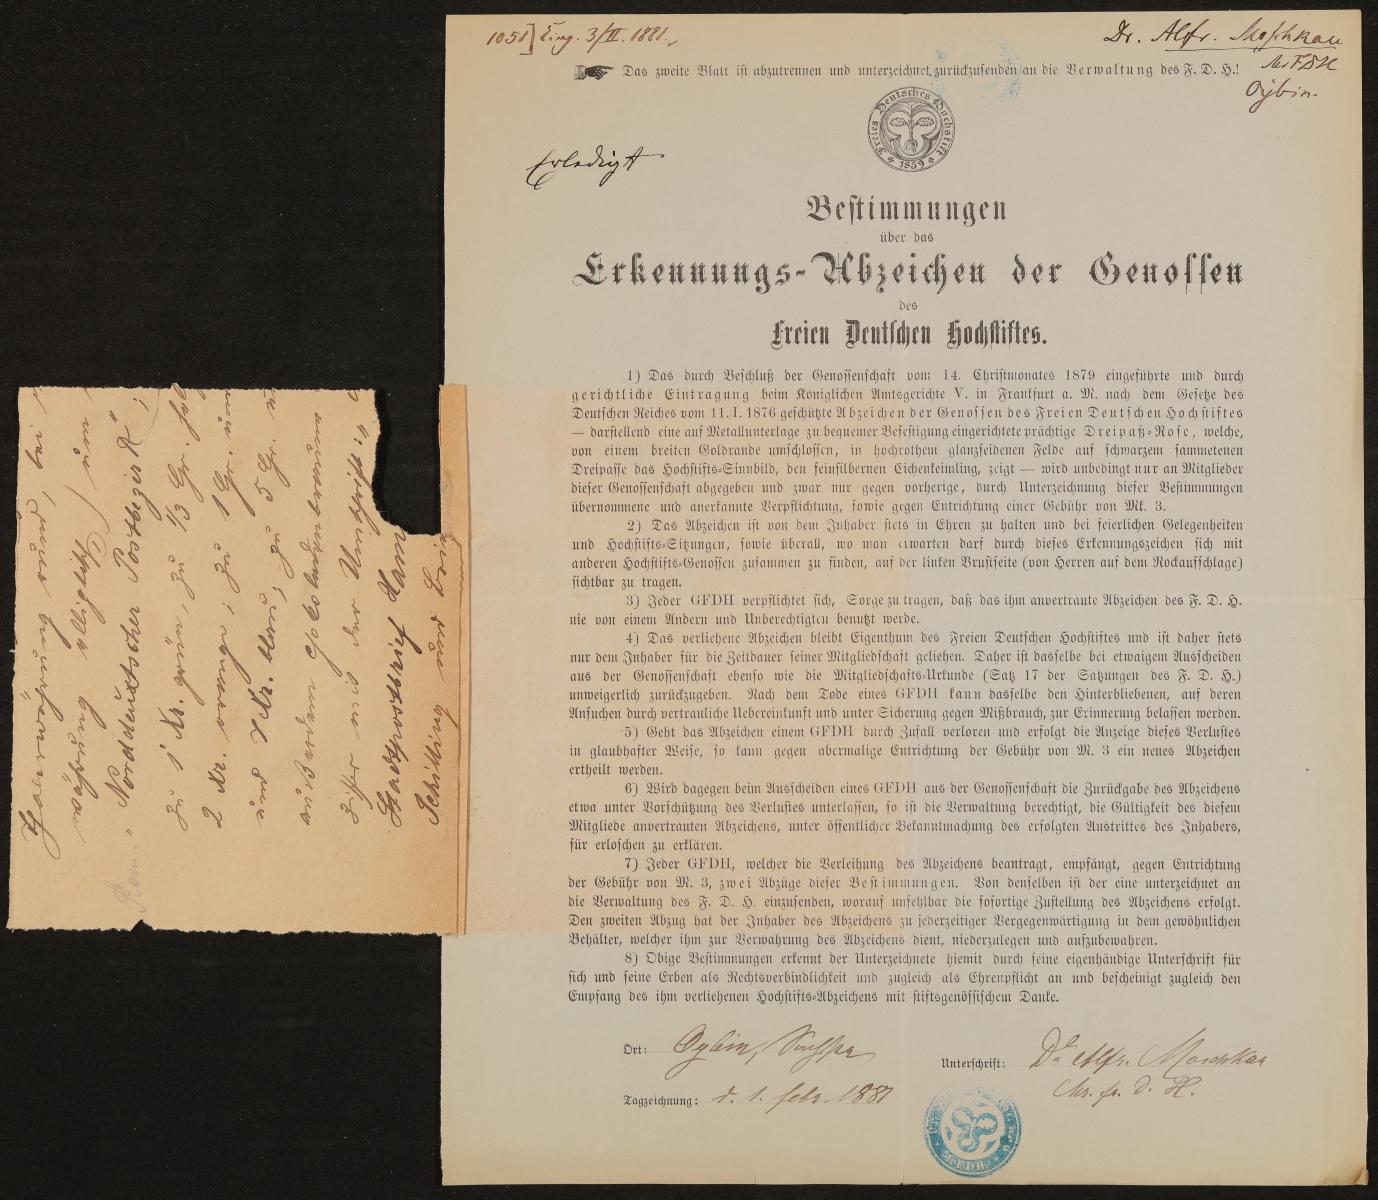 1051] Eing. 3/II. 1881.
Dr. Alfr. Moschkau
Mr. FDH
Oybin.
☛ Das zweite Blatt iſt abzutrennen und unterzeichnet zurückzuſenden an die Verwaltung des F. D. H.!
Freies Deutſches Hochſtift * 1859 *
Erledigt
Beſtimmungen
über das
Erkennungs-Abzeichen der Genoſſen
des
Freien Deutſchen Hochſtiftes.
1) Das durch Beſchluß der Genoſſenſchaft vom 14. Chriſtmonates 1879 eingeführte und durch
gerichtliche Eintragung beim Königlichen Amtsgerichte V. in Frankfurt a. M. nach dem Geſetze des
Deutſchen Reiches vom 11./I. 1876 geſchützte Abzeichen der Genoſſen des Freien Deutſchen Hochſtiftes
— darſtellend eine auf Metallunterlage zu bequemer Befeſtigung eingerichtete prächtige Dreipaß-Roſe, welche,
von einem breiten Goldrande umſchloſſen, in hochrothem glanzſeidenen Felde auf ſchwarzem ſammetenen
Dreipaſſe das Hochſtifts-Sinnbild, den feinſilbernen Eichenkeimling, zeigt — wird unbedingt nur an Mitglieder
dieſer Genoſſenſchaft abgegeben und zwar nur gegen vorherige, durch Unterzeichnung dieſer Beſtimmungen
übernommene und anerkannte Verpflichtung, ſowie gegen Entrichtung einer Gebühr von Mk. 3.
2) Das Abzeichen iſt von dem Inhaber ſtets in Ehren zu halten und bei feierlichen Gelegenheiten
und Hochſtifts-Sitzungen, ſowie überall, wo man erwarten darf durch dieſes Erkennungszeichen ſich mit
anderen Hochſtifts-Genoſſen zuſammen zu finden, auf der linken Bruſtſeite (von Herren auf dem Rockaufſchlage)
ſichtbar zu tragen.
3) Jeder GFDH verpflichtet ſich, Sorge zu tragen, daß das ihm anvertraute Abzeichen des F. D. H.
nie von einem Andern und Unberechtigten benutzt werde.
4) Das verliehene Abzeichen bleibt Eigenthum des Freien Deutſchen Hochſtiftes und iſt daher ſtets
nur dem Inhaber für die Zeitdauer ſeiner Mitgliedſchaft geliehen. Daher iſt dasſelbe bei etwaigem Ausſcheiden
aus der Genoſſenſchaft ebenſo wie die Mitgliedſchafts-Urkunde (Satz 17 der Satzungen des F. D. H.)
unweigerlich zurückzugeben. Nach dem Tode eines GFDH kann dasſelbe den Hinterbliebenen, auf deren
Anſuchen durch vertrauliche Uebereinkunft und unter Sicherung gegen Mißbrauch, zur Erinnerung belaſſen werden.
5) Geht das Abzeichen einem GFDH durch Zufall verloren und erfolgt die Anzeige dieſes Verluſtes
in glaubhafter Weiſe, ſo kann gegen abermalige Entrichtung der Gebühr von M. 3 ein neues Abzeichen
ertheilt werden.
6) Wird dagegen beim Ausſcheiden eines GFDH aus der Genoſſenſchaft die Zurückgabe des Abzeichens
etwa unter Vorſchützung des Verluſtes unterlaſſen, ſo iſt die Verwaltung berechtigt, die Gültigkeit des dieſem
Mitgliede anvertrauten Abzeichens, unter öffentlicher Bekanntmachung des erfolgten Austrittes des Inhabers,
für erloſchen zu erklären.
7) Jeder GFDH, welcher die Verleihung des Abzeichens beantragt, empfängt, gegen Entrichtung
der Gebühr von M. 3, zwei Abzüge dieſer Beſtimmungen. Von denſelben iſt der eine unterzeichnet an
die Verwaltung des F. D. H. einzuſenden, worauf unfehlbar die ſofortige Zuſtellung des Abzeichens erfolgt.
Den zweiten Abzug hat der Inhaber des Abzeichens zu jederzeitiger Vergegenwärtigung in dem gewöhnlichen
Behälter, welcher ihm zur Verwahrung des Abzeichens dient, niederzulegen und aufzubewahren.
8) Obige Beſtimmungen erkennt der Unterzeichnete hiemit durch ſeine eigenhändige Unterſchrift für
ſich und ſeine Erben als Rechtsverbindlichkeit und zugleich als Ehrenpflicht an und beſcheinigt zugleich den
Empfang des ihm verliehenen Hochſtifts-Abzeichens mit ſtiftsgenöſſiſchem Danke.
Ort: Oybin, Sachsen
Unterſchrift: Dr. Alfr. Moschkau
Mr. fr. D. H.
Tagzeichnung: d. 1. febr. 1881
während lediglich (nun
"Norddeutscher Postbezirk"
zu 1 Kr. grün, zu 1/3 Gr.
2 Kr. orange; zu 1 Gr.
und 7 Kr. blau; zu 5 Gr.
Ziffer und der Umschrift:
Stadtpostbrief Ham
Schilling und